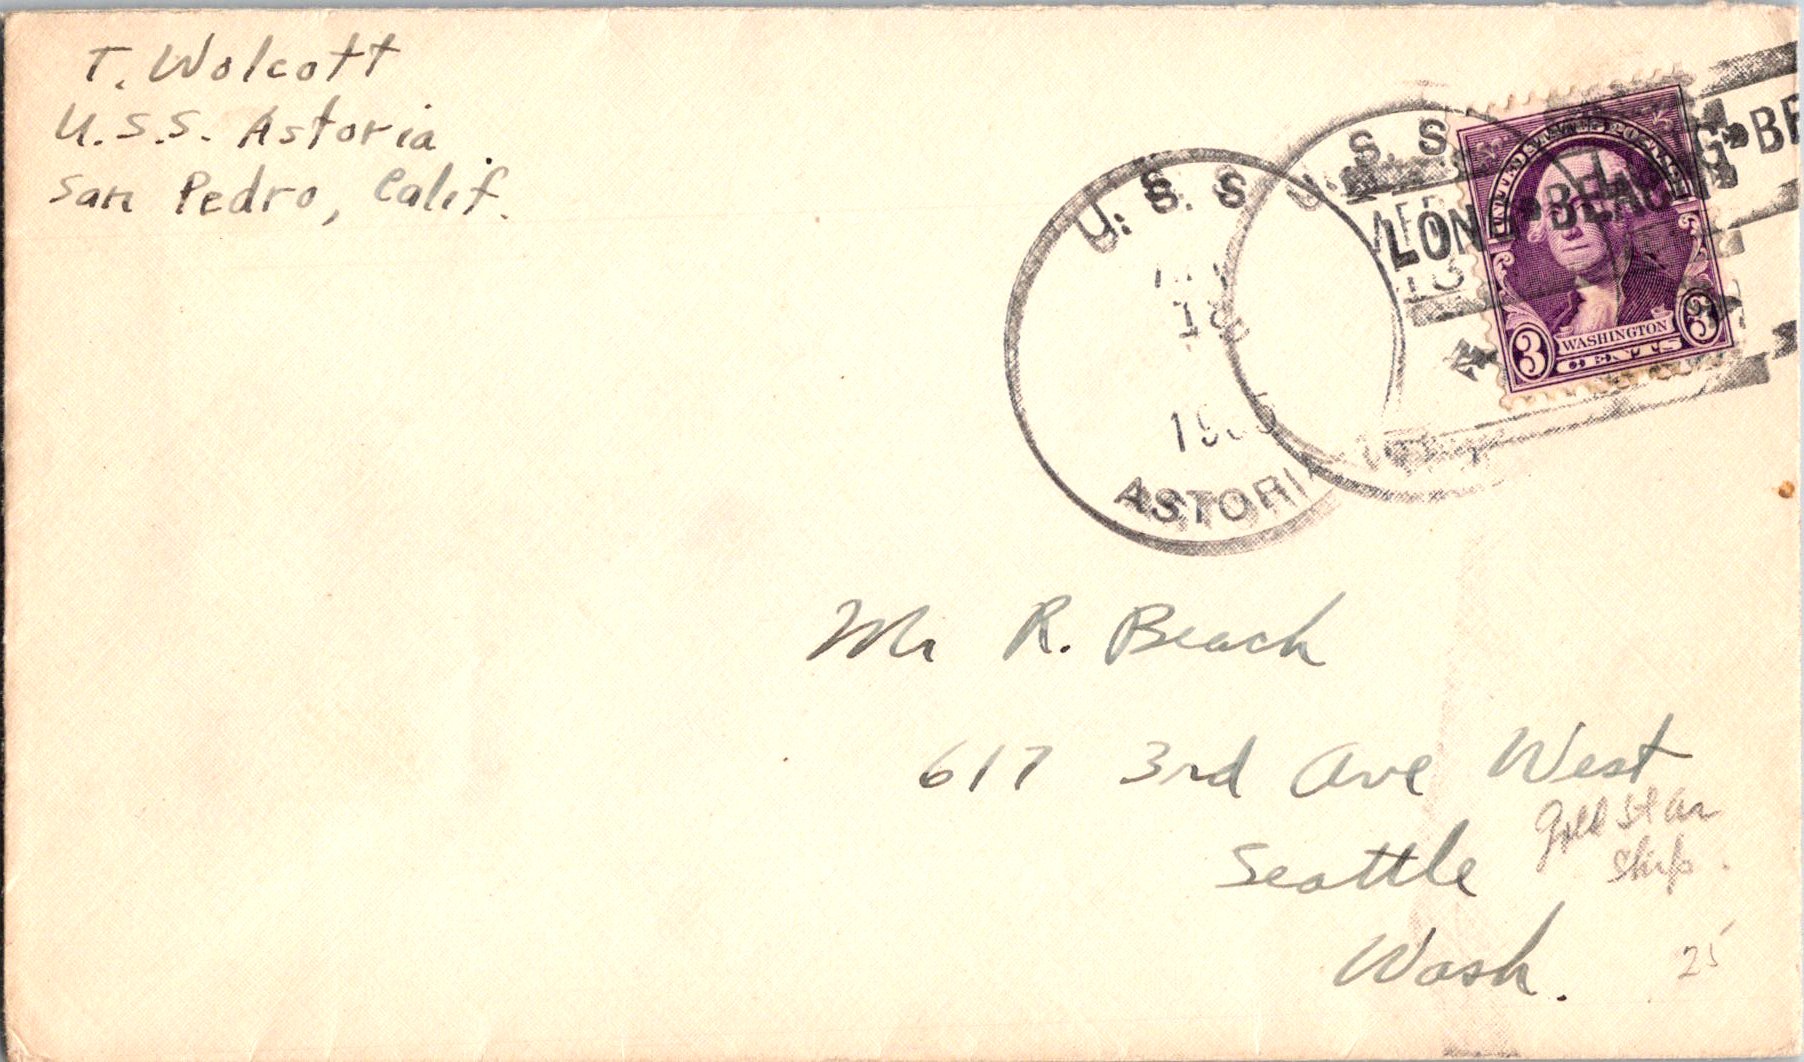 T. Wolcott
U.S.S. Astoria
San Pedro, Calif.
U. S. S.
18
ASTORIA
U. S. S.
APR
18
LONG BEACH
UNITED STATES POSTAGE
WASHINGTON
3 CENTS 3
Mr R. Beach
617 3rd Ave West
Seattle
Wash.
Gold Star
Ship.
25